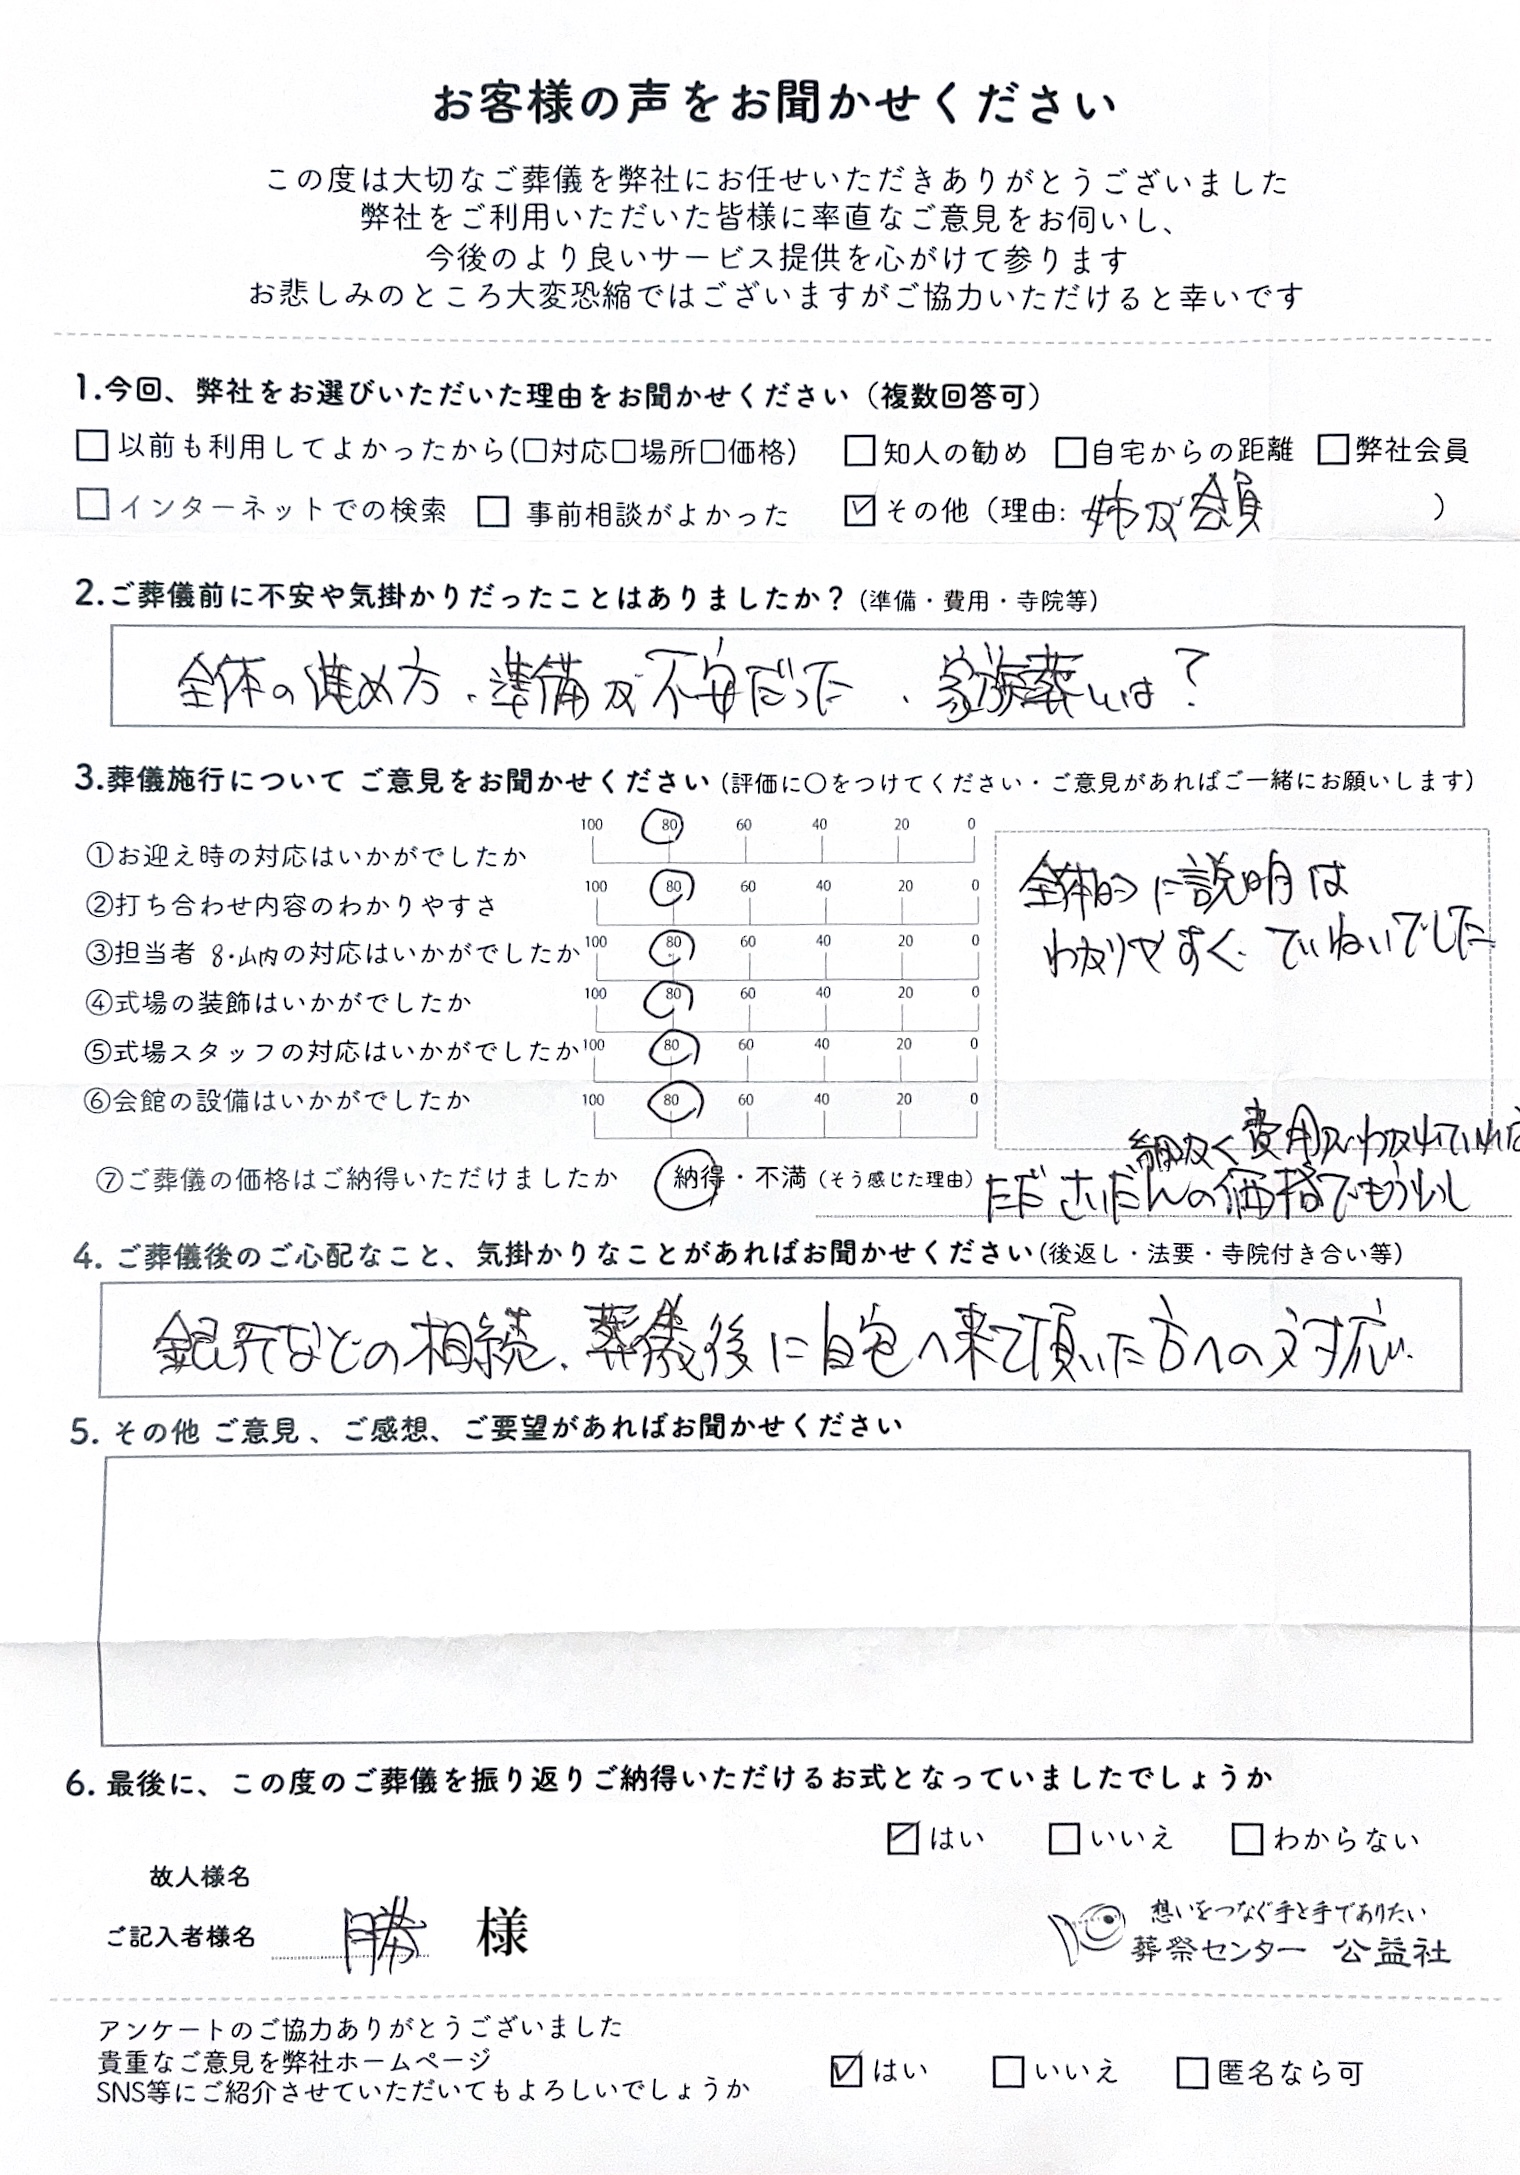 お客様の声をお聞かせください
この度は大切なご葬儀を弊社にお任せいただきありがとうございました
弊社をご利用いただいた皆様に率直なご意見をお伺いし、
今後のより良いサービス提供を心がけて参ります
お悲しみのところ大変恐縮ではございますがご協力いただけると幸いです
1.今回、弊社をお選びいただいた理由をお聞かせください（複数回答可）
□以前も利用してよかったから(□対応□場所□価格) □知人の勧め □自宅からの距離 □弊社会員
□インターネットでの検索 □事前相談がよかった ☑その他（理由: 姉が会員 ）
2.ご葬儀前に不安や気掛かりだったことはありましたか？（準備・費用・寺院等）
全体の進め方、準備が不安だった、家族葬とは？
3.葬儀施行について ご意見をお聞かせください（評価に〇をつけてください・ご意見があればご一緒にお願いします）
①お迎え時の対応はいかがでしたか 100 80 60 40 20 0
②打ち合わせ内容のわかりやすさ 100 80 60 40 20 0
③担当者 の対応はいかがでしたか 100 80 60 40 20 0
④式場の装飾はいかがでしたか 100 80 60 40 20 0
⑤式場スタッフの対応はいかがでしたか 100 80 60 40 20 0
⑥会館の設備はいかがでしたか 100 80 60 40 20 0
全体的に説明は
わかりやすく、ていねいでした
⑦ご葬儀の価格はご納得いただけましたか 納得・不満（そう感じた理由）
細かく費用がわかれていれば
たださいだんの価格でもう少し
4. ご葬儀後のご心配なこと、気掛かりなことがあればお聞かせください（後返し・法要・寺院付き合い等）
銀行などの相続、葬儀後に自宅へ来て頂いた方への対応
5. その他 ご意見、ご感想、ご要望があればお聞かせください
6. 最後に、この度のご葬儀を振り返りご納得いただけるお式となっていましたでしょうか
☑はい □いいえ □わからない
故人様名
ご記入者様名 勝 様
想いをつなぐ手と手でありたい
葬祭センター 公益社
アンケートのご協力ありがとうございました
貴重なご意見を弊社ホームページ
SNS等にご紹介させていただいてもよろしいでしょうか
☑はい □いいえ □匿名なら可